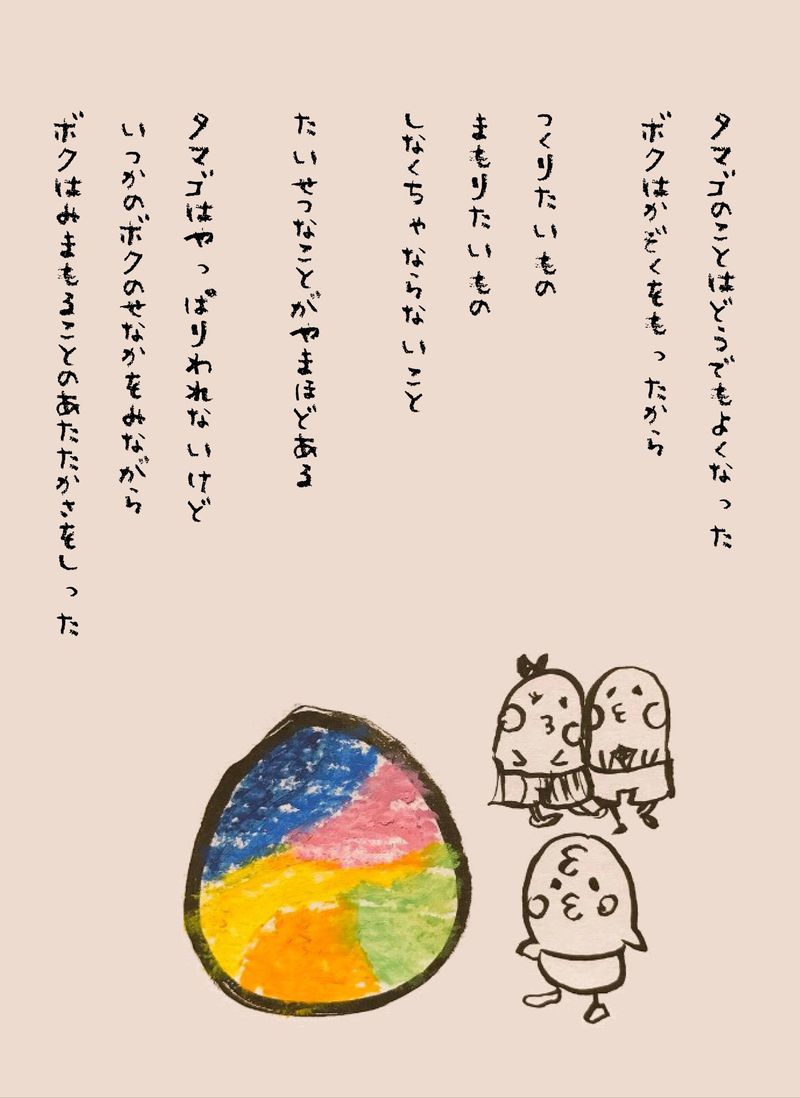 タマゴのことはどうでもよくなった
ボクはかぞくをもったから
つくりたいもの
まもりたいもの
しなくちゃならないこと
たいせつなことがやまほどある
タマゴはやっぱりわれないけど
いつかのボクのせなかをみながら
ボクはみまもることのあたたかさをしった